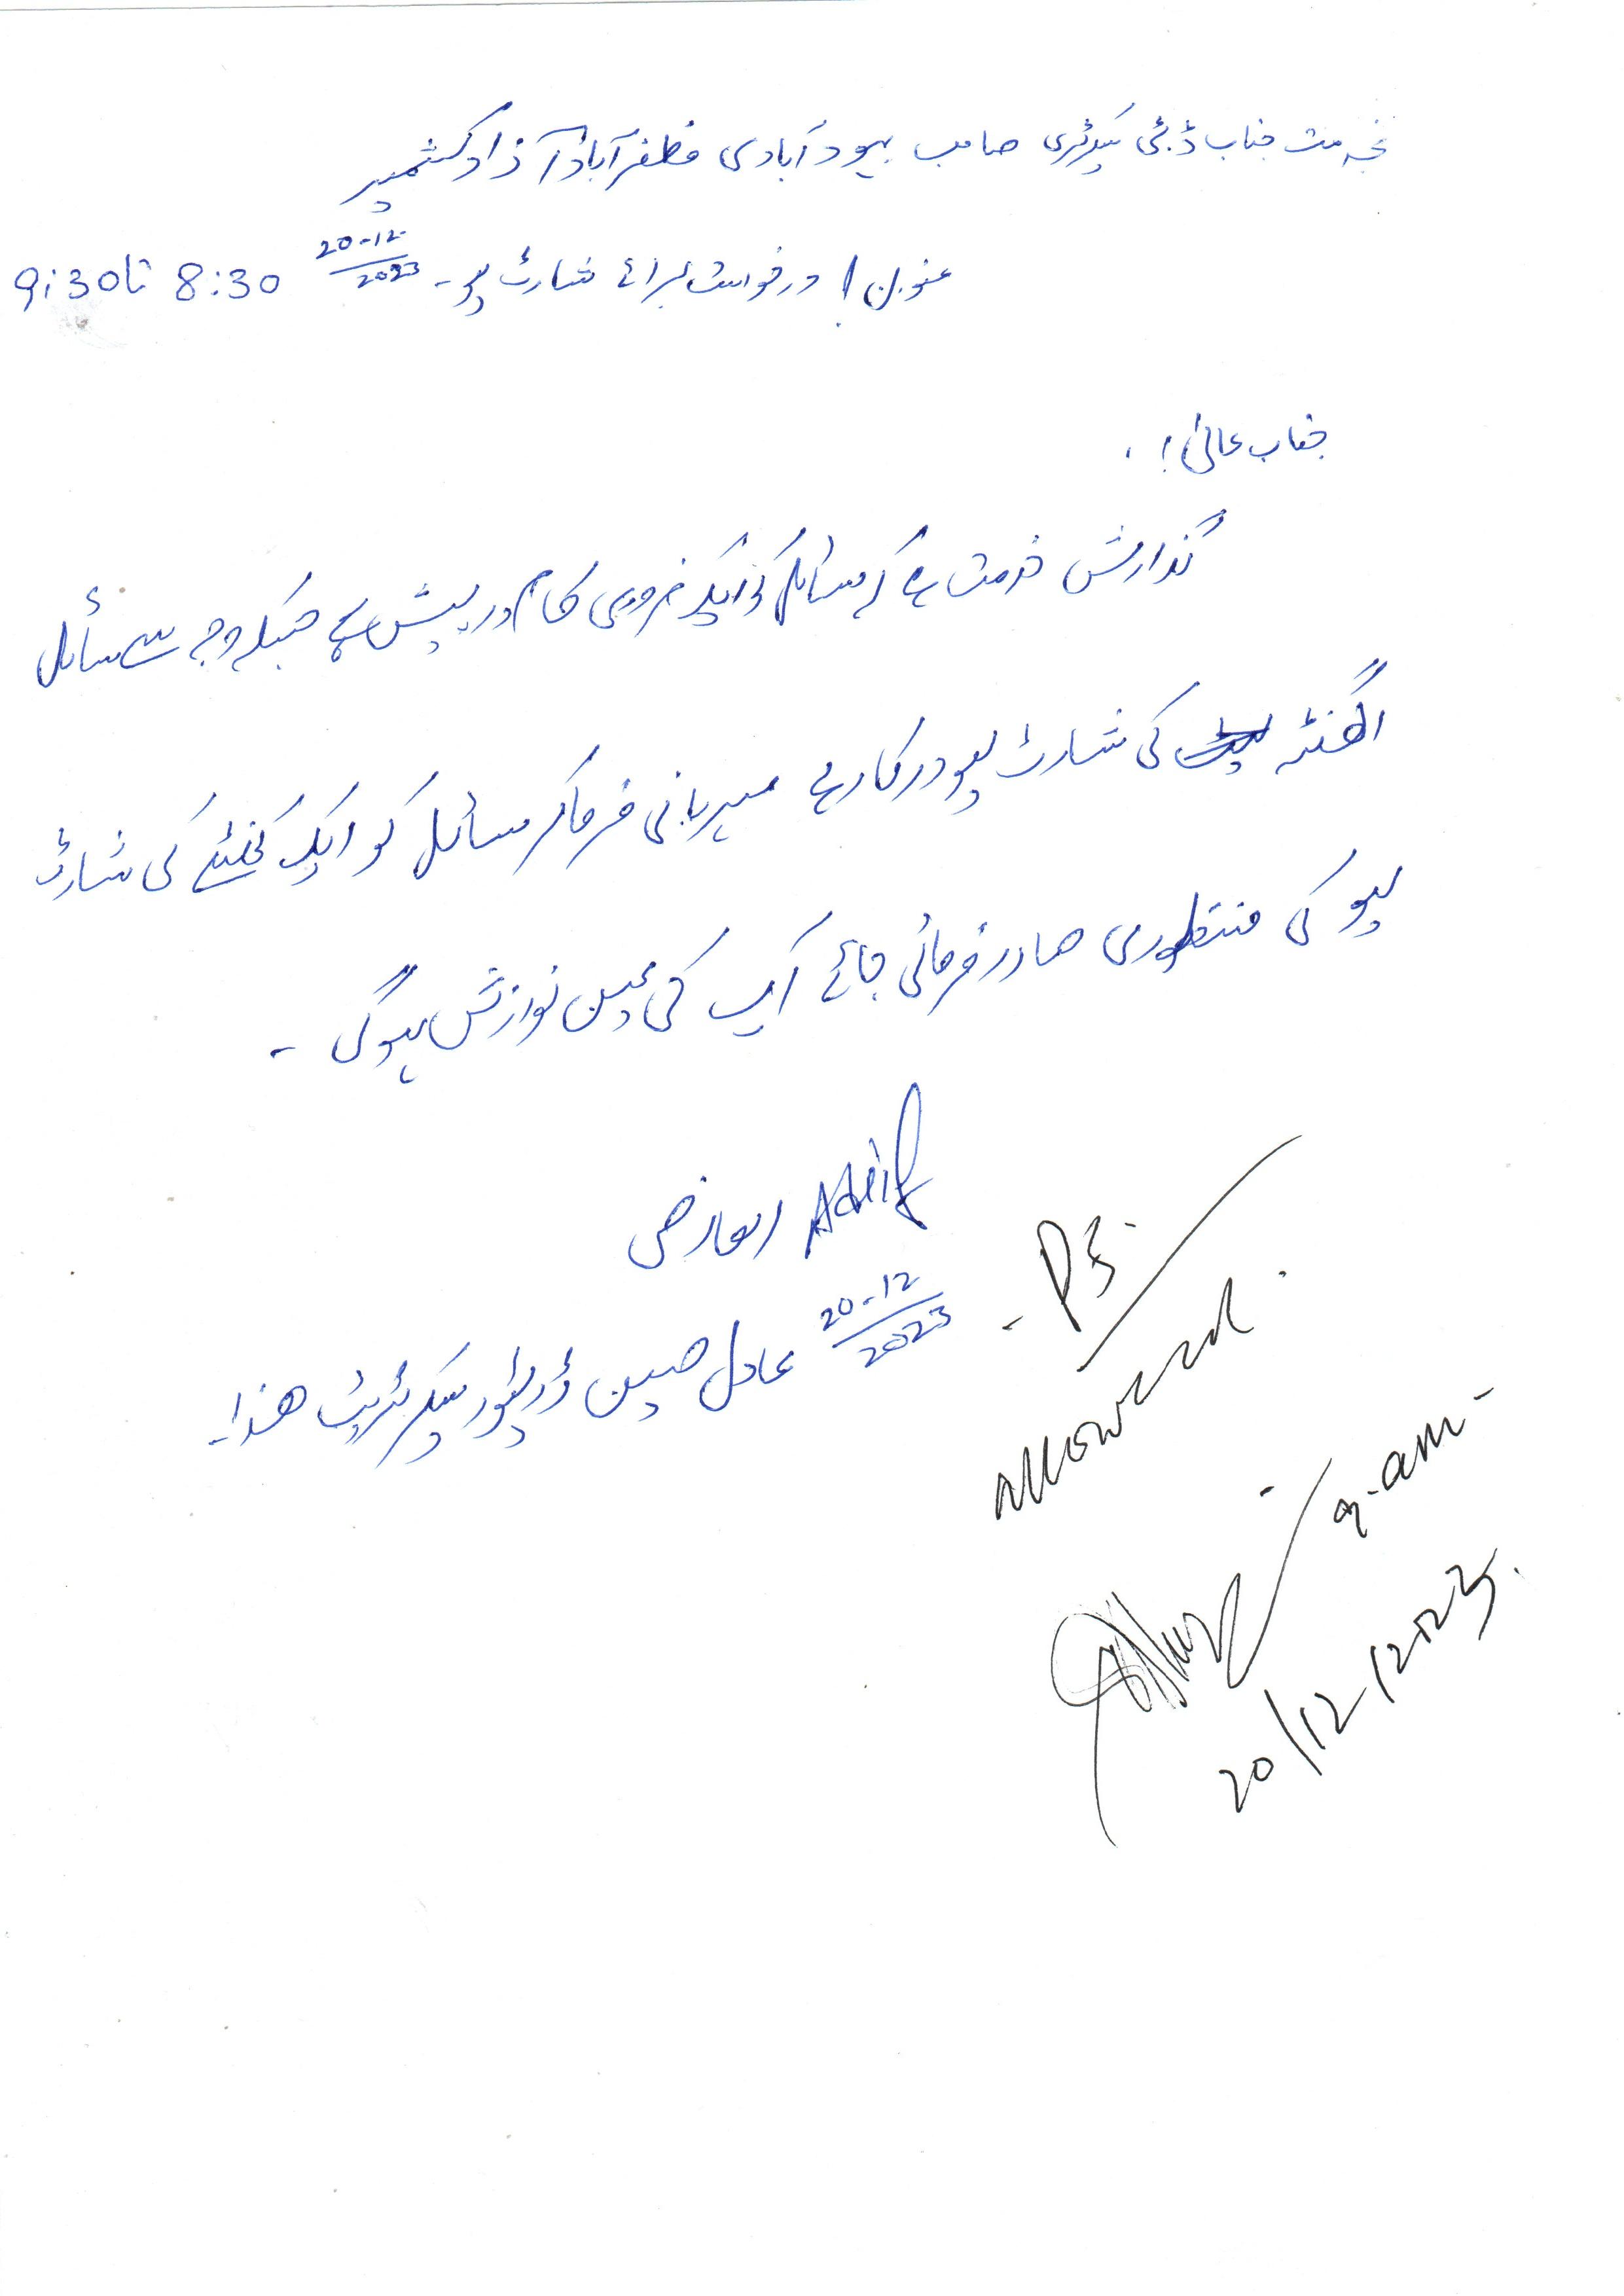 بخدمت جناب ڈپٹی سیکرٹری صاحب بہبود آبادی مظفرآباد آزاد کشمیر
عنوان! درخواست برائے شارٹ لیو۔ 20-12-2023 8:30 تا 9:30
جناب عالی!
گذارش خدمت ہے کہ سائل کو ایک ضروری کام درپیش ہے جسکی وجہ سے سائل
1 گھنٹہ کی شارٹ لیو درکار ہے مہربانی فرما کر سائل کو ایک گھنٹے کی شارٹ
لیو کی منظوری صادر فرمائی جائے آپ کی عین نوازش ہوگی۔
العارض
20-12-2023 عادل حسین ڈرائیور سیکرٹریٹ ھذا۔
- PS.
Allowed.
9-am-
20/12/2023.